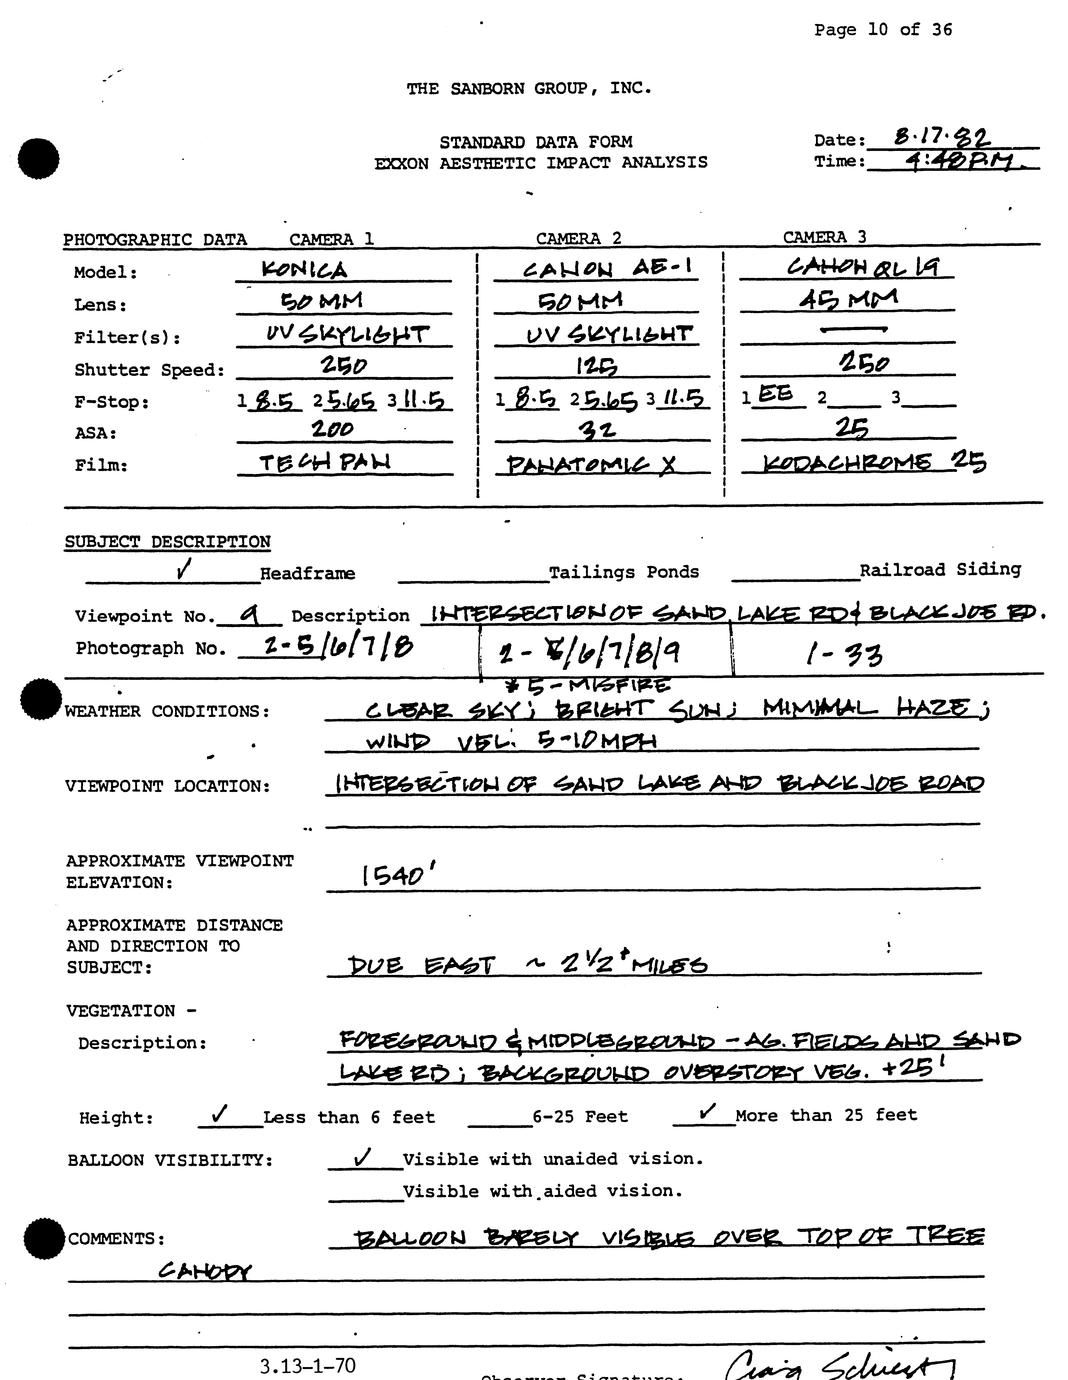 Page 10 of 36
THE SANBORN GROUP, INC.
STANDARD DATA FORM
EXXON AESTHETIC IMPACT ANALYSIS
Date: 8·17·82
Time: 4:48 P.M.
PHOTOGRAPHIC DATA CAMERA 1 CAMERA 2 CAMERA 3
Model: KONICA CANON AE-1 CANON QL 19
Lens: 50 MM 50 MM 45 MM
Filter(s): UV SKYLIGHT UV SKYLIGHT —
Shutter Speed: 250 125 250
F-Stop: 1 8.5 2 5.65 3 11.5 1 8.5 2 5.65 3 11.5 1 EE 2 3
ASA: 200 32 25
Film: TECH PAN PANATOMIC X KODACHROME 25
SUBJECT DESCRIPTION
✓ Headframe Tailings Ponds Railroad Siding
Viewpoint No. 9 Description INTERSECTION OF SAND LAKE RD & BLACK JOE RD.
Photograph No. 2-5/6/7/8 2-5/6/7/8/9 1-33
* 5-MISFIRE
WEATHER CONDITIONS: CLEAR SKY; BRIGHT SUN; MIMIMAL HAZE;
WIND VEL. 5-10 MPH
VIEWPOINT LOCATION: INTERSECTION OF SAND LAKE AND BLACK JOE ROAD
APPROXIMATE VIEWPOINT
ELEVATION: 1540'
APPROXIMATE DISTANCE
AND DIRECTION TO
SUBJECT: DUE EAST ~ 2 1/2+ MILES
VEGETATION -
Description: FOREGROUND & MIDDLEGROUND - AG. FIELDS AND SAND
LAKE RD; BACKGROUND OVERSTORY VEG. +25'
Height: ✓ Less than 6 feet 6-25 Feet ✓ More than 25 feet
BALLOON VISIBILITY: ✓ Visible with unaided vision.
Visible with aided vision.
COMMENTS: BALLOON BARELY VISIBLE OVER TOP OF TREE
CANOPY
3.13-1-70
Observer Signature: Craig